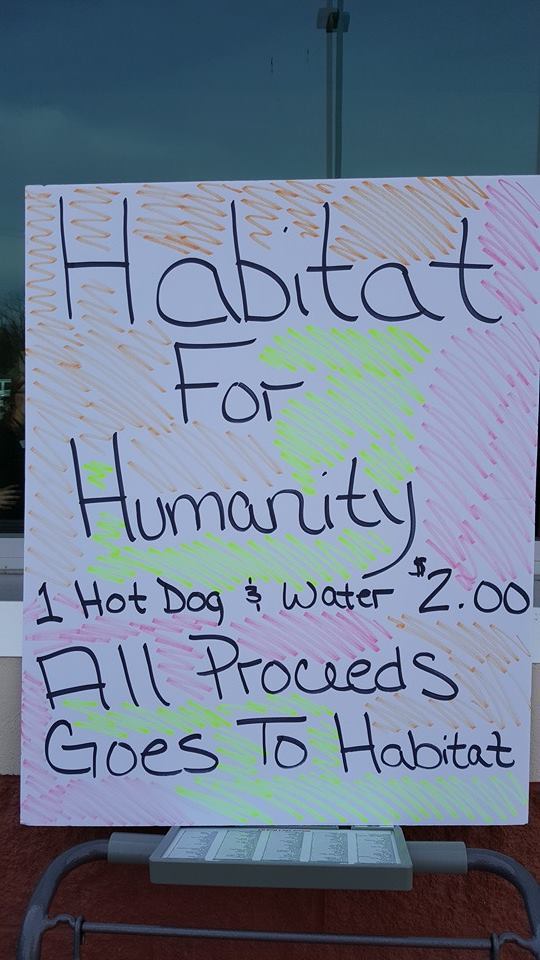 Habitat
For
Humanity
1 Hot Dog & Water $2.00
All Proceeds
Goes To Habitat